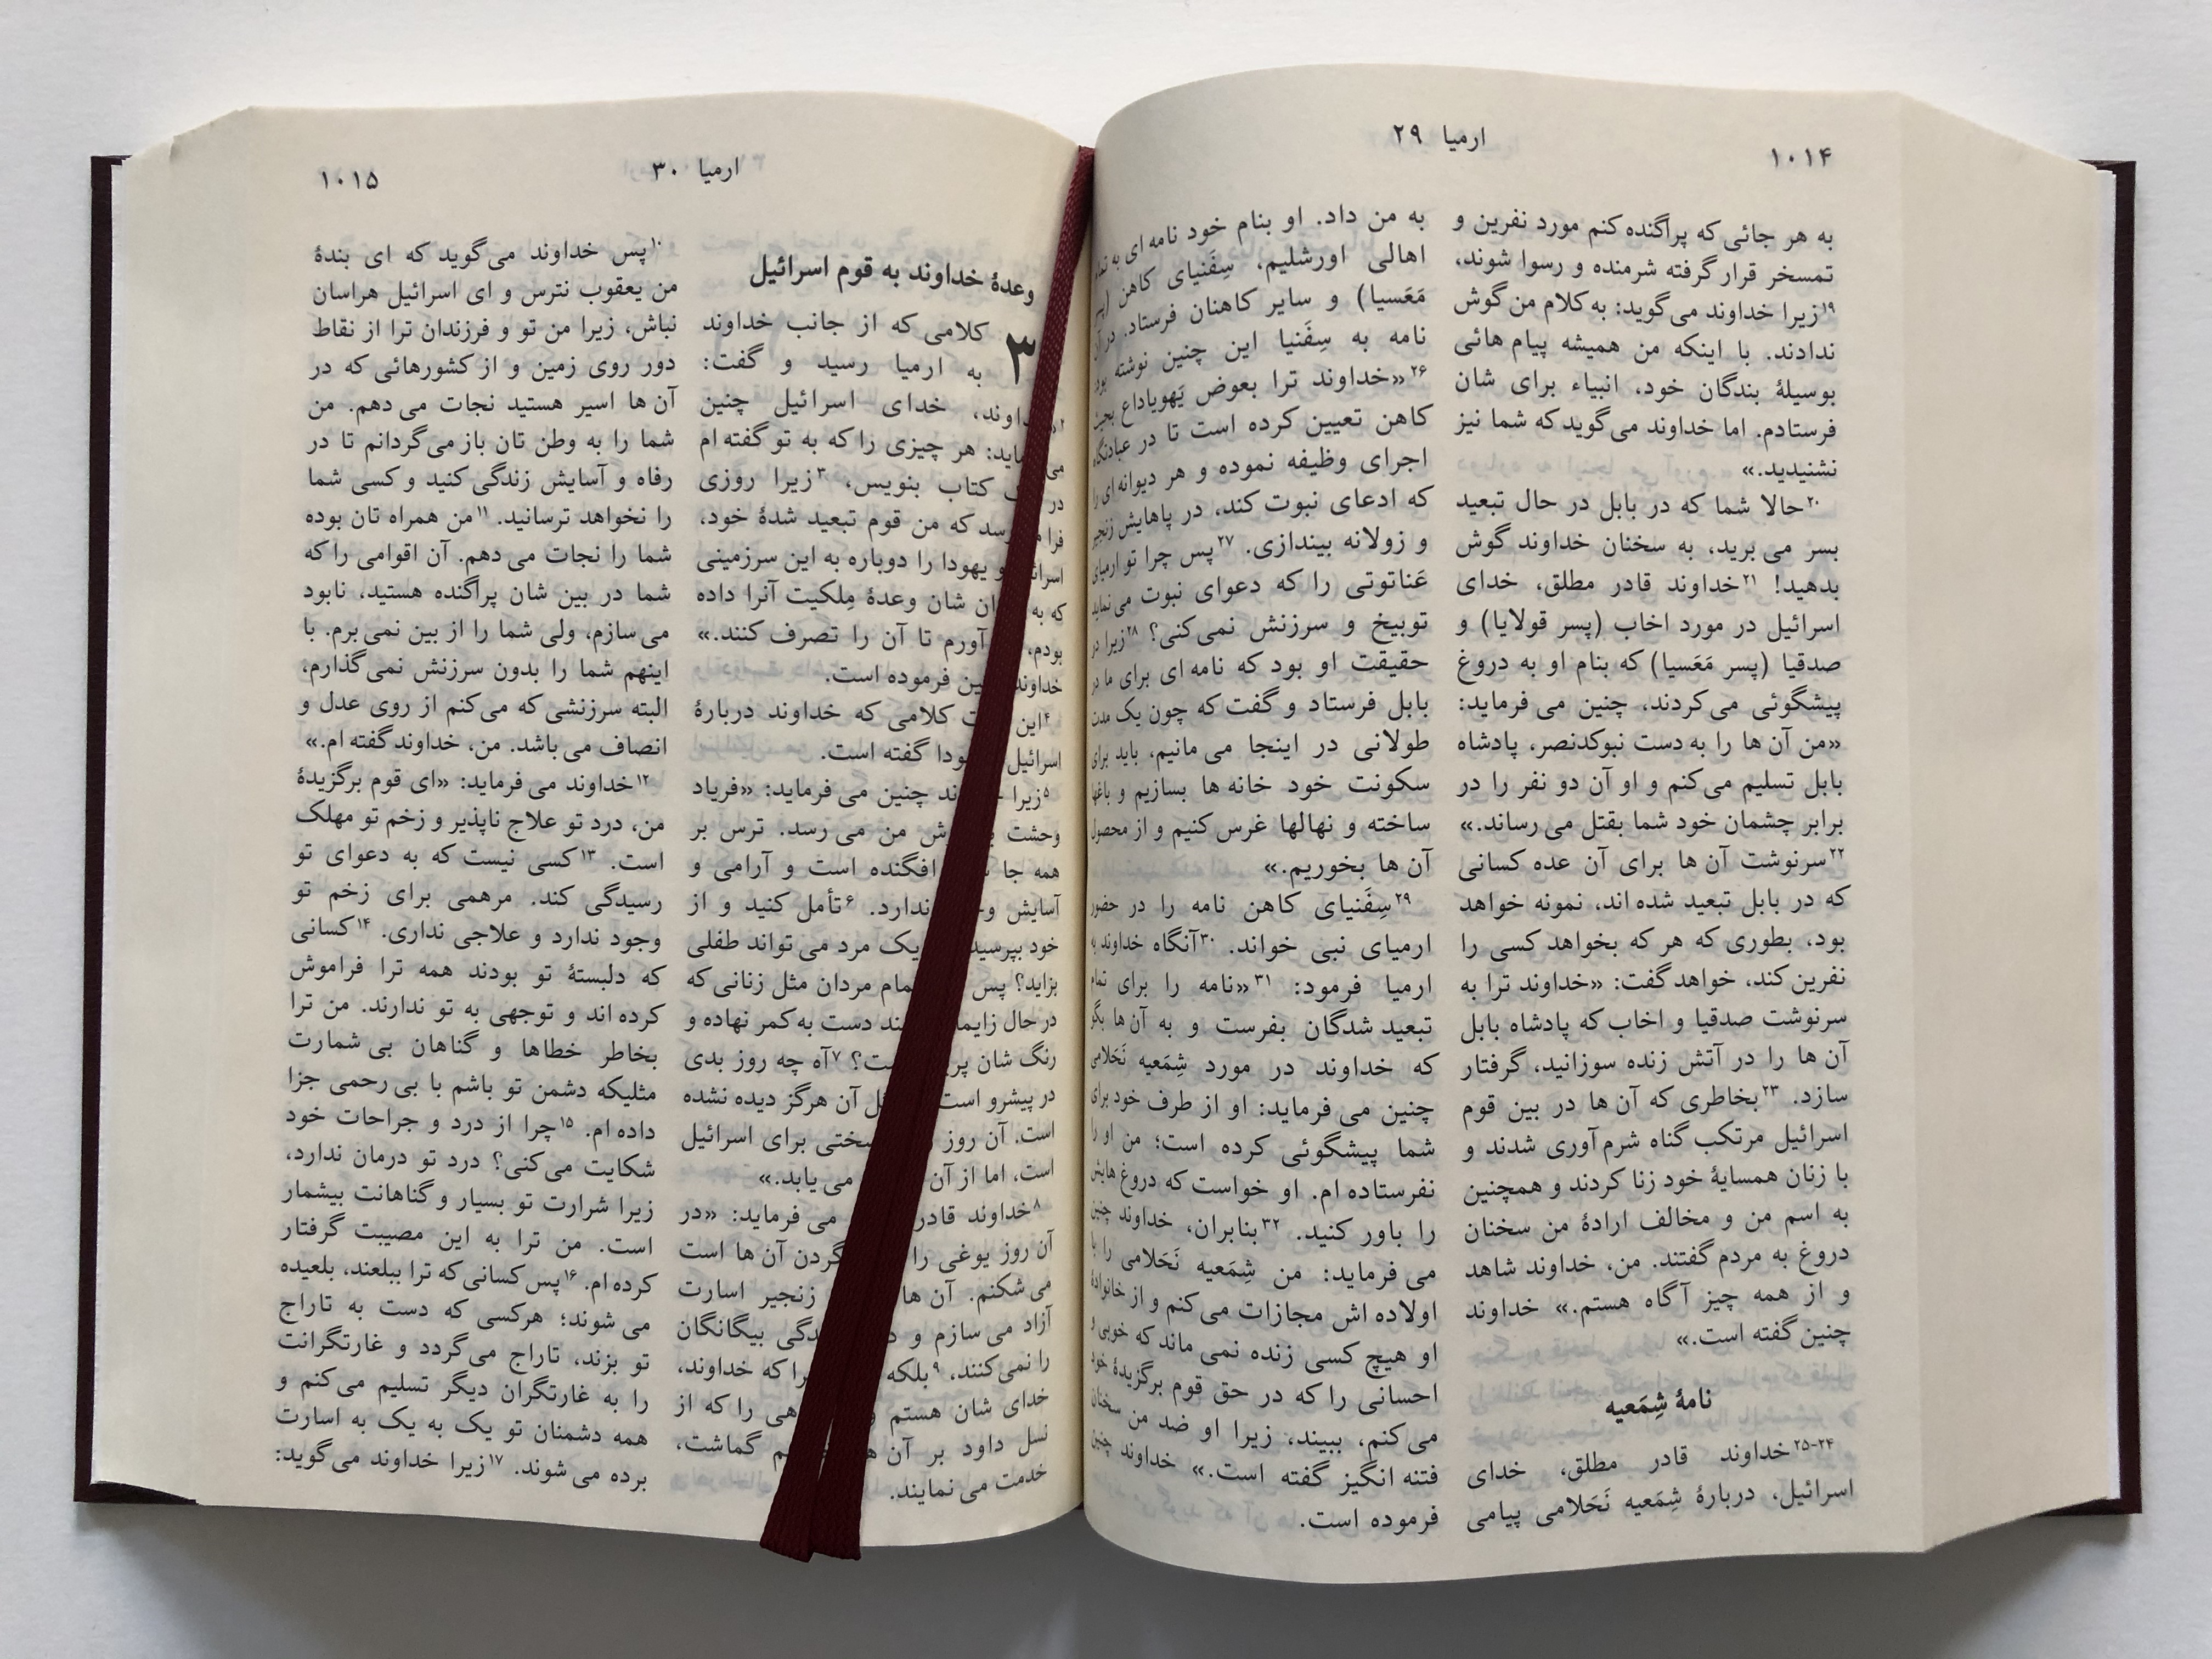 ۱۰۱۴
ارمیا ۲۹
به هر جائی که پراگنده کنم مورد نفرین و
تمسخر قرار گرفته شرمنده و رسوا شوند،
۱۹زیرا خداوند می گوید: به کلام من گوش
ندادند. با اینکه من همیشه پیام هائی
بوسیلهٔ بندگان خود، انبیاء برای شان
فرستادم. اما خداوند می گوید که شما نیز
نشنیدید.»
۲۰حالا شما که در بابل در حال تبعید
بسر می برید، به سخنان خداوند گوش
بدهید! ۲۱خداوند قادر مطلق، خدای
اسرائیل در مورد اخاب (پسر قولایا) و
صدقیا (پسر مَعَسیا) که بنام او به دروغ
پیشگوئی می کردند، چنین می فرماید:
«من آن ها را به دست نبوکدنصر، پادشاه
بابل تسلیم می کنم و او آن دو نفر را در
برابر چشمان خود شما بقتل می رساند.»
۲۲سرنوشت آن ها برای آن عده کسانی
که در بابل تبعید شده اند، نمونه خواهد
بود، بطوری که هر که بخواهد کسی را
نفرین کند، خواهد گفت: «خداوند ترا به
سرنوشت صدقیا و اخاب که پادشاه بابل
آن ها را در آتش زنده سوزانید، گرفتار
سازد. ۲۳بخاطری که آن ها در بین قوم
اسرائیل مرتکب گناه شرم آوری شدند و
با زنان همسایهٔ خود زنا کردند و همچنین
به اسم من و مخالف ارادهٔ من سخنان
دروغ به مردم گفتند. من، خداوند شاهد
و از همه چیز آگاه هستم.» خداوند
چنین گفته است.»
نامهٔ شِمَعیه
۲۴-۲۵خداوند قادر مطلق، خدای
اسرائیل، دربارهٔ شِمَعیه نَحَلامی پیامی
به من داد. او بنام خود نامه ای به
اهالی اورشلیم، سِفَنیای کاهن (پسر
مَعَسیا) و سایر کاهنان فرستاد. در آن
نامه به سِفَنیا این چنین نوشته بود:
۲۶«خداوند ترا بعوض یَهویاداع بحیث
کاهن تعیین کرده است تا در عبادتگاه
اجرای وظیفه نموده و هر دیوانه ای را
که ادعای نبوت کند، در پاهایش زنجیر
و زولانه بیندازی. ۲۷پس چرا تو ارمیای
عَناتوتی را که دعوای نبوت می نماید
توبیخ و سرزنش نمی کنی؟ ۲۸زیرا در
حقیقت او بود که نامه ای برای ما در
بابل فرستاد و گفت که چون یک مدت
طولانی در اینجا می مانیم، باید برای
سکونت خود خانه ها بسازیم و باغها
ساخته و نهالها غرس کنیم و از محصول
آن ها بخوریم.»
۲۹سِفَنیای کاهن نامه را در حضور
ارمیای نبی خواند. ۳۰آنگاه خداوند به
ارمیا فرمود: ۳۱«نامه را برای تمام
تبعید شدگان بفرست و به آن ها بگو
که خداوند در مورد شِمَعیه نَحَلامی
چنین می فرماید: او از طرف خود برای
شما پیشگوئی کرده است؛ من او را
نفرستاده ام. او خواست که دروغ هایش
را باور کنید. ۳۲بنابران، خداوند چنین
می فرماید: من شِمَعیه نَحَلامی را با
اولاده اش مجازات می کنم و از خانوادهٔ
او هیچ کسی زنده نمی ماند که خوبی و
احسانی را که در حق قوم برگزیدهٔ خود
می کنم، ببیند، زیرا او ضد من سخنان
فتنه انگیز گفته است.» خداوند چنین
فرموده است.
ارمیا ۳۰
۱۰۱۵
وعدهٔ خداوند به قوم اسرائیل
۳
کلامی که از جانب خداوند
به ارمیا رسید و گفت:
خدای اسرائیل چنین
هر چیزی را که به تو گفته ام
در کتاب بنویس، ۳زیرا روزی
فرا که من قوم تبعید شدهٔ خود،
و یهودا را دوباره به این سرزمینی
که به شان وعدهٔ مِلکیت آنرا داده
بودم، آورم تا آن را تصرف کنند.»
فرموده است.
۴این کلامی که خداوند دربارهٔ
اسرائیل گفته است.
۵زیرا چنین می فرماید: «فریاد
وحشت من می رسد. ترس بر
همه جا افگنده است و آرامی و
آسایش ندارد. ۶تأمل کنید و از
خود بپرسید یک مرد می تواند طفلی
بزاید؟ پس مردان مثل زنانی که
در حال دست به کمر نهاده و
رنگ شان ۷آه چه روز بدی
در پیشرو است آن هرگز دیده نشده
است. آن روز سختی برای اسرائیل
است، اما از آن می یابد.»
۸خداوند قادر می فرماید: «در
آن روز یوغی را گردن آن ها است
می شکنم. آن ها زنجیر اسارت
آزاد می سازم و بیگانگان
را نمی کنند، ۹بلکه که خداوند،
خدای شان هستم را که از
نسل داود بر آن گماشت،
خدمت می نمایند.
۱۰پس خداوند می گوید که ای بندهٔ
من یعقوب نترس و ای اسرائیل هراسان
نباش، زیرا من تو و فرزندان ترا از نقاط
دور روی زمین و از کشورهائی که در
آن ها اسیر هستید نجات می دهم. من
شما را به وطن تان باز می گردانم تا در
رفاه و آسایش زندگی کنید و کسی شما
را نخواهد ترسانید. ۱۱من همراه تان بوده
شما را نجات می دهم. آن اقوامی را که
شما در بین شان پراگنده هستید، نابود
می سازم، ولی شما را از بین نمی برم. با
اینهم شما را بدون سرزنش نمی گذارم،
البته سرزنشی که می کنم از روی عدل و
انصاف می باشد. من، خداوند گفته ام.»
۱۲خداوند می فرماید: «ای قوم برگزیدهٔ
من، درد تو علاج ناپذیر و زخم تو مهلک
است. ۱۳کسی نیست که به دعوای تو
رسیدگی کند. مرهمی برای زخم تو
وجود ندارد و علاجی نداری. ۱۴کسانی
که دلبستهٔ تو بودند همه ترا فراموش
کرده اند و توجهی به تو ندارند. من ترا
بخاطر خطاها و گناهان بی شمارت
مثلیکه دشمن تو باشم با بی رحمی جزا
داده ام. ۱۵چرا از درد و جراحات خود
شکایت می کنی؟ درد تو درمان ندارد،
زیرا شرارت تو بسیار و گناهانت بیشمار
است. من ترا به این مصیبت گرفتار
کرده ام. ۱۶پس کسانی که ترا ببلعند، بلعیده
می شوند؛ هرکسی که دست به تاراج
تو بزند، تاراج می گردد و غارتگرانت
را به غارتگران دیگر تسلیم می کنم و
همه دشمنان تو یک به یک به اسارت
برده می شوند. ۱۷زیرا خداوند می گوید: